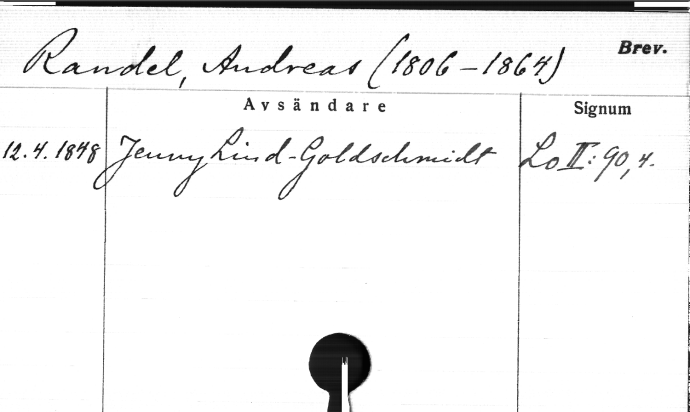 Randel, Andreas (1806-1864) Brev.
Avsändare Signum
12.4.1848 Jenny Lind-Goldschmidt Lo II: 90, 4.